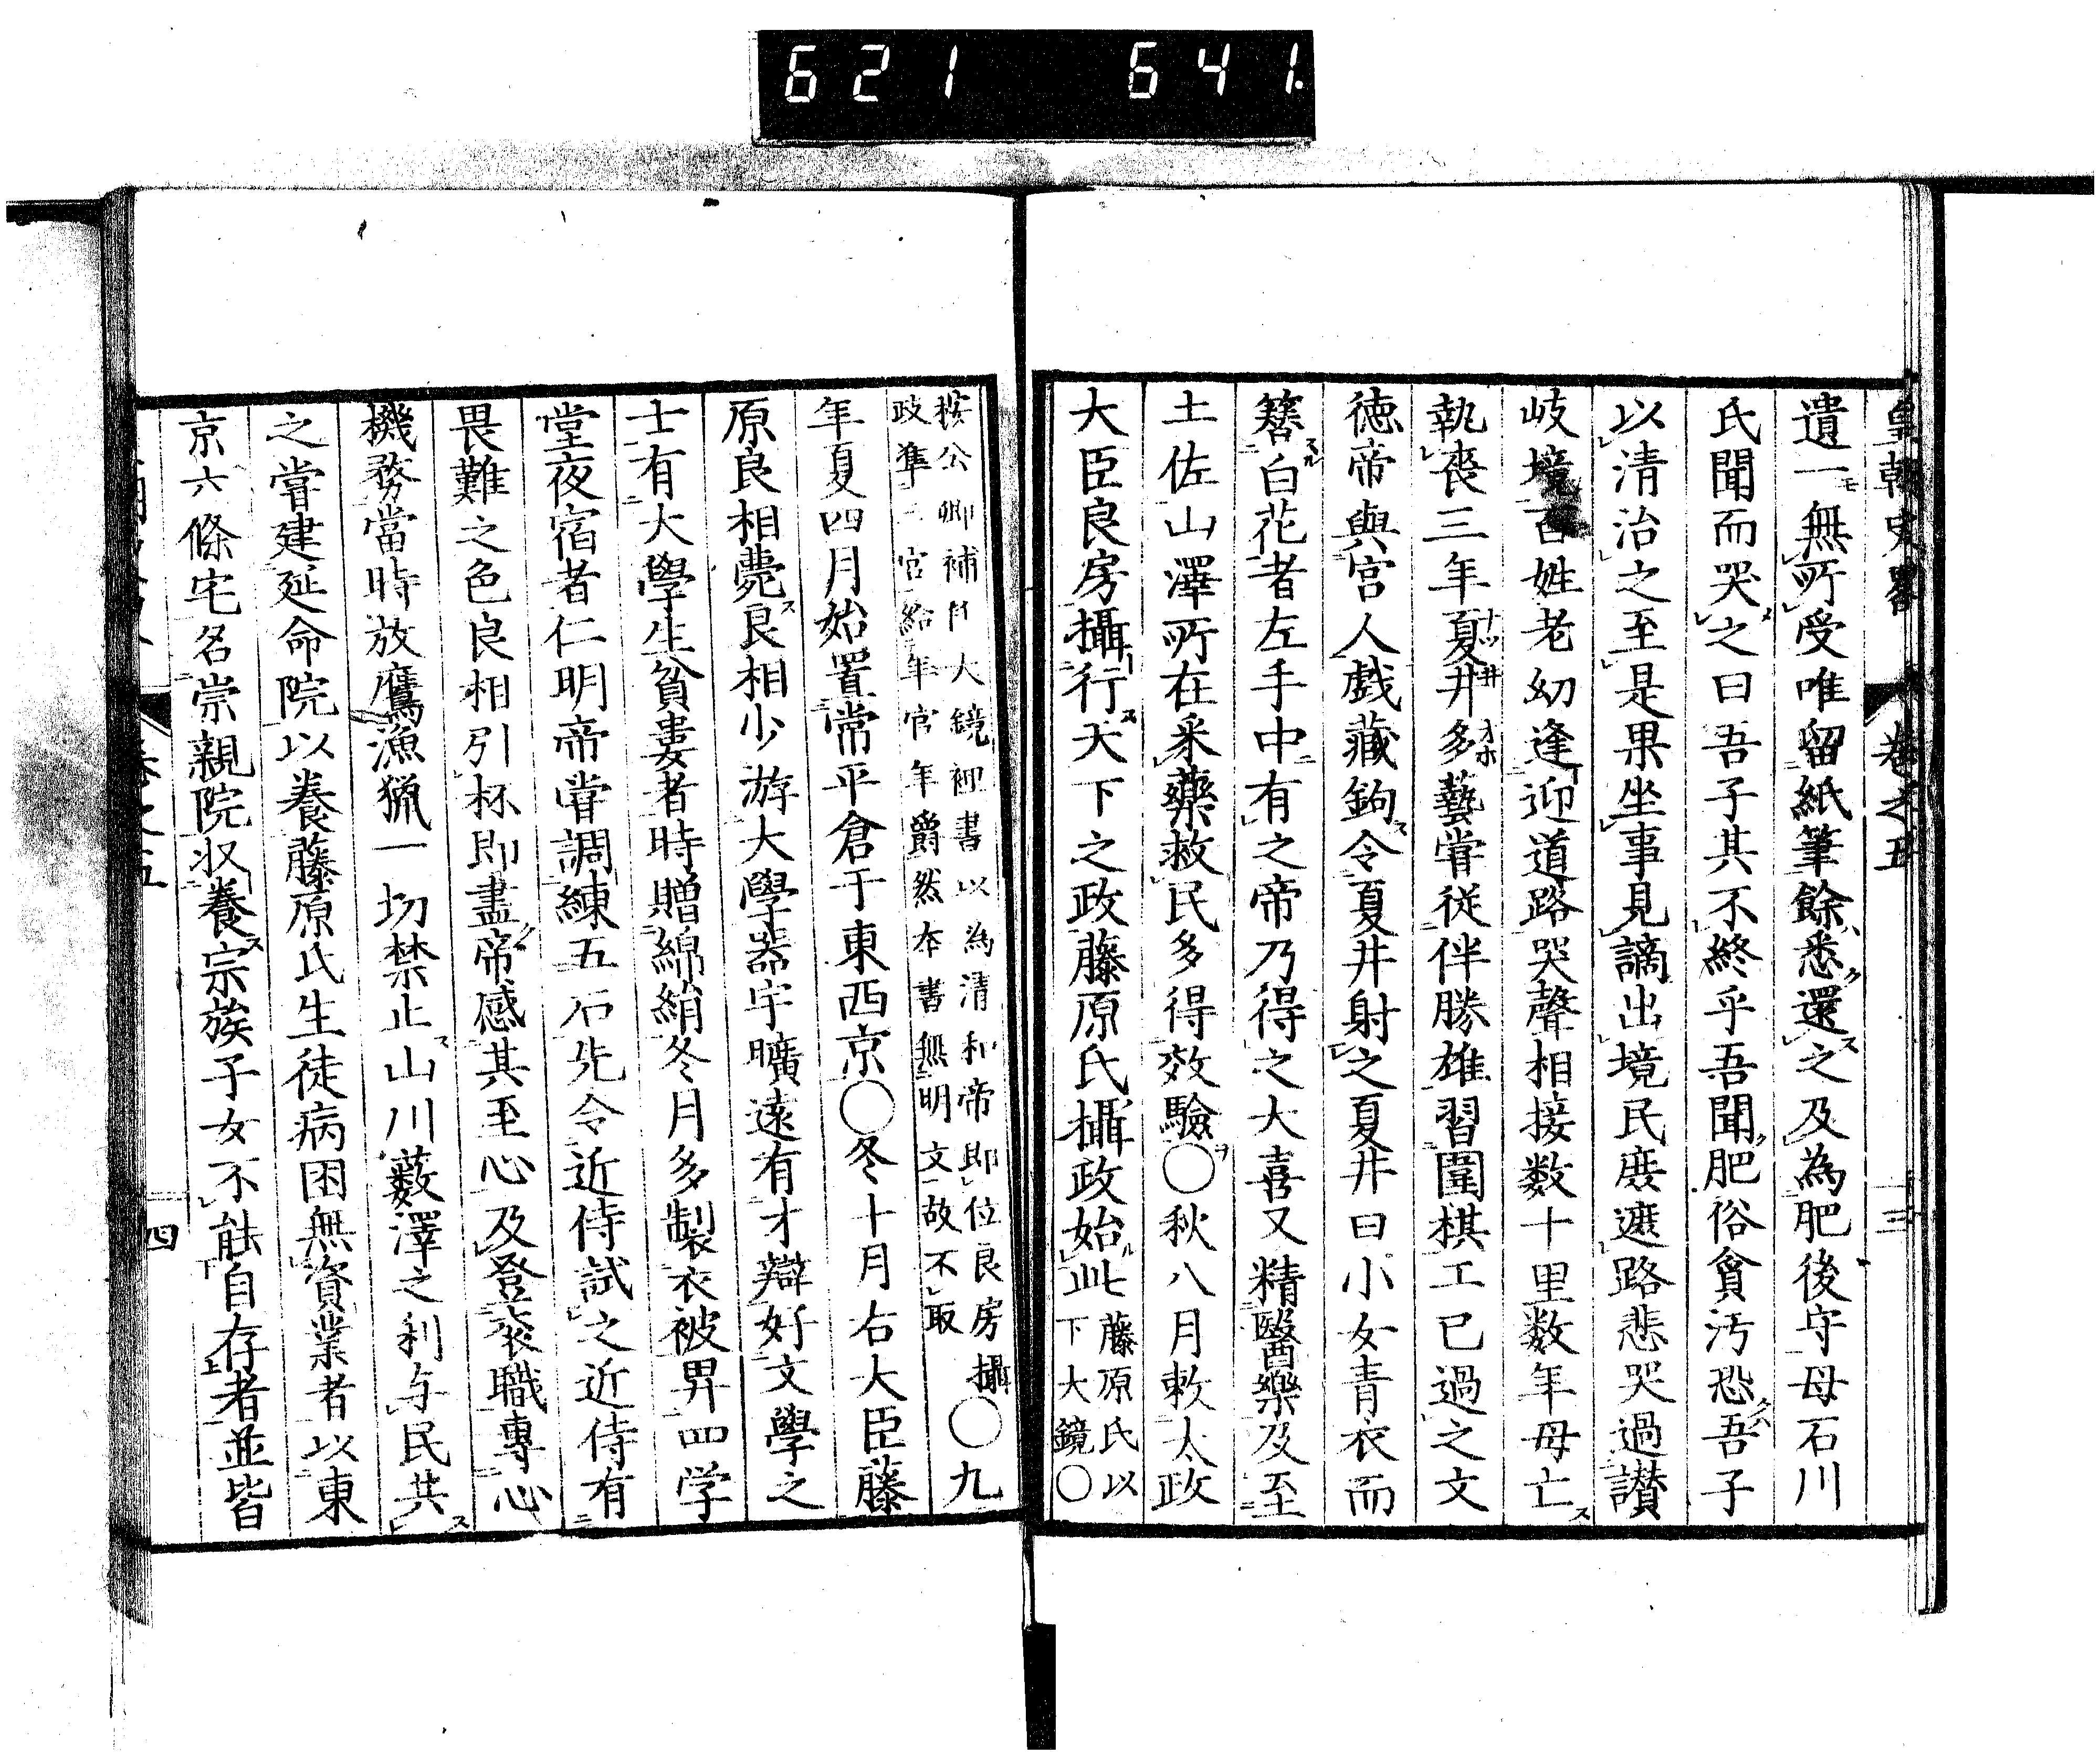 621 641
皇朝史畧 卷之五 三
遺一無所受唯留紙筆餘悉還之及為肥後守母石川
氏聞而哭之曰吾子其不終乎吾聞肥俗貪汚恐吾子
以清治之至是果坐事見謫出境民庶遮路悲哭過讃
岐境百姓老幼逢迎道路哭聲相接数十里数年母亡
執喪三年夏井多藝甞従伴勝雄習圍棋工已過之文
徳帝與宮人戯藏鉤令夏井射之夏井曰小女青衣而
簪白花者左手中有之帝乃得之大喜又精醫藥及至
土佐山澤所在采藥救民多得效驗〇秋八月敕太政
大臣良房攝行天下之政藤原氏攝政始此藤原氏以下大鏡〇
按公卿補任大鏡裡書以為清和帝即位良房攝
政準三官給年官年爵然本書無明文故不取〇九
年夏四月始置常平倉于東西京〇冬十月右大臣藤
原良相薨良相少游大學器宇曠遠有才辯好文學之
士有大學生貧窶者時贈綿絹冬月多製衣被畀四学
堂夜宿者仁明帝甞調練五石先令近侍試之近侍有
畏難之色良相引杯即盡帝感其至心及登衮職專心
機務當時放鷹漁猟一切禁止山川藪澤之利与民共
之甞建延命院以養藤原氏生徒病困無資業者以東
京六條宅名崇親院收養宗族子女不能自存者並皆
卷之五 四